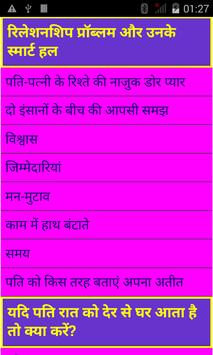 01:27
रिलेशनशिप प्रॉब्लम और उनके
स्मार्ट हल
पति-पत्नी के रिश्ते की नाजुक डोर प्यार
दो इंसानों के बीच की आपसी समझ
विश्वास
जिम्मेदारियां
मन-मुटाव
काम में हाथ बंटाते
समय
पति को किस तरह बताएं अपना अतीत
यदि पति रात को देर से घर आता है
तो क्या करें?